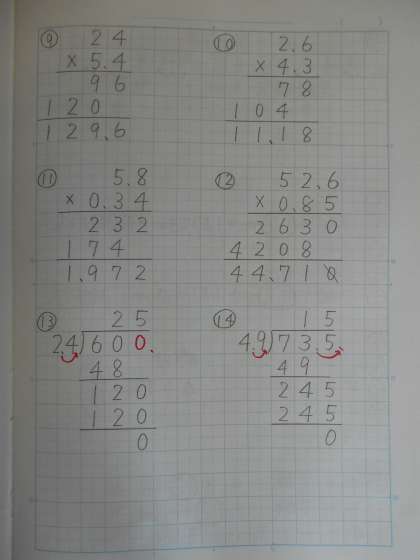 ⑨ 24
× 5.4
96
120
129.6
⑩ 2.6
× 4.3
78
104
11.18
⑪ 5.8
× 0.34
232
174
1.972
⑫ 52.6
× 0.85
2630
4208
44.710
⑬ 25
2.4)600.
48
120
120
0
⑭ 15
4.9)73.5.
49
245
245
0